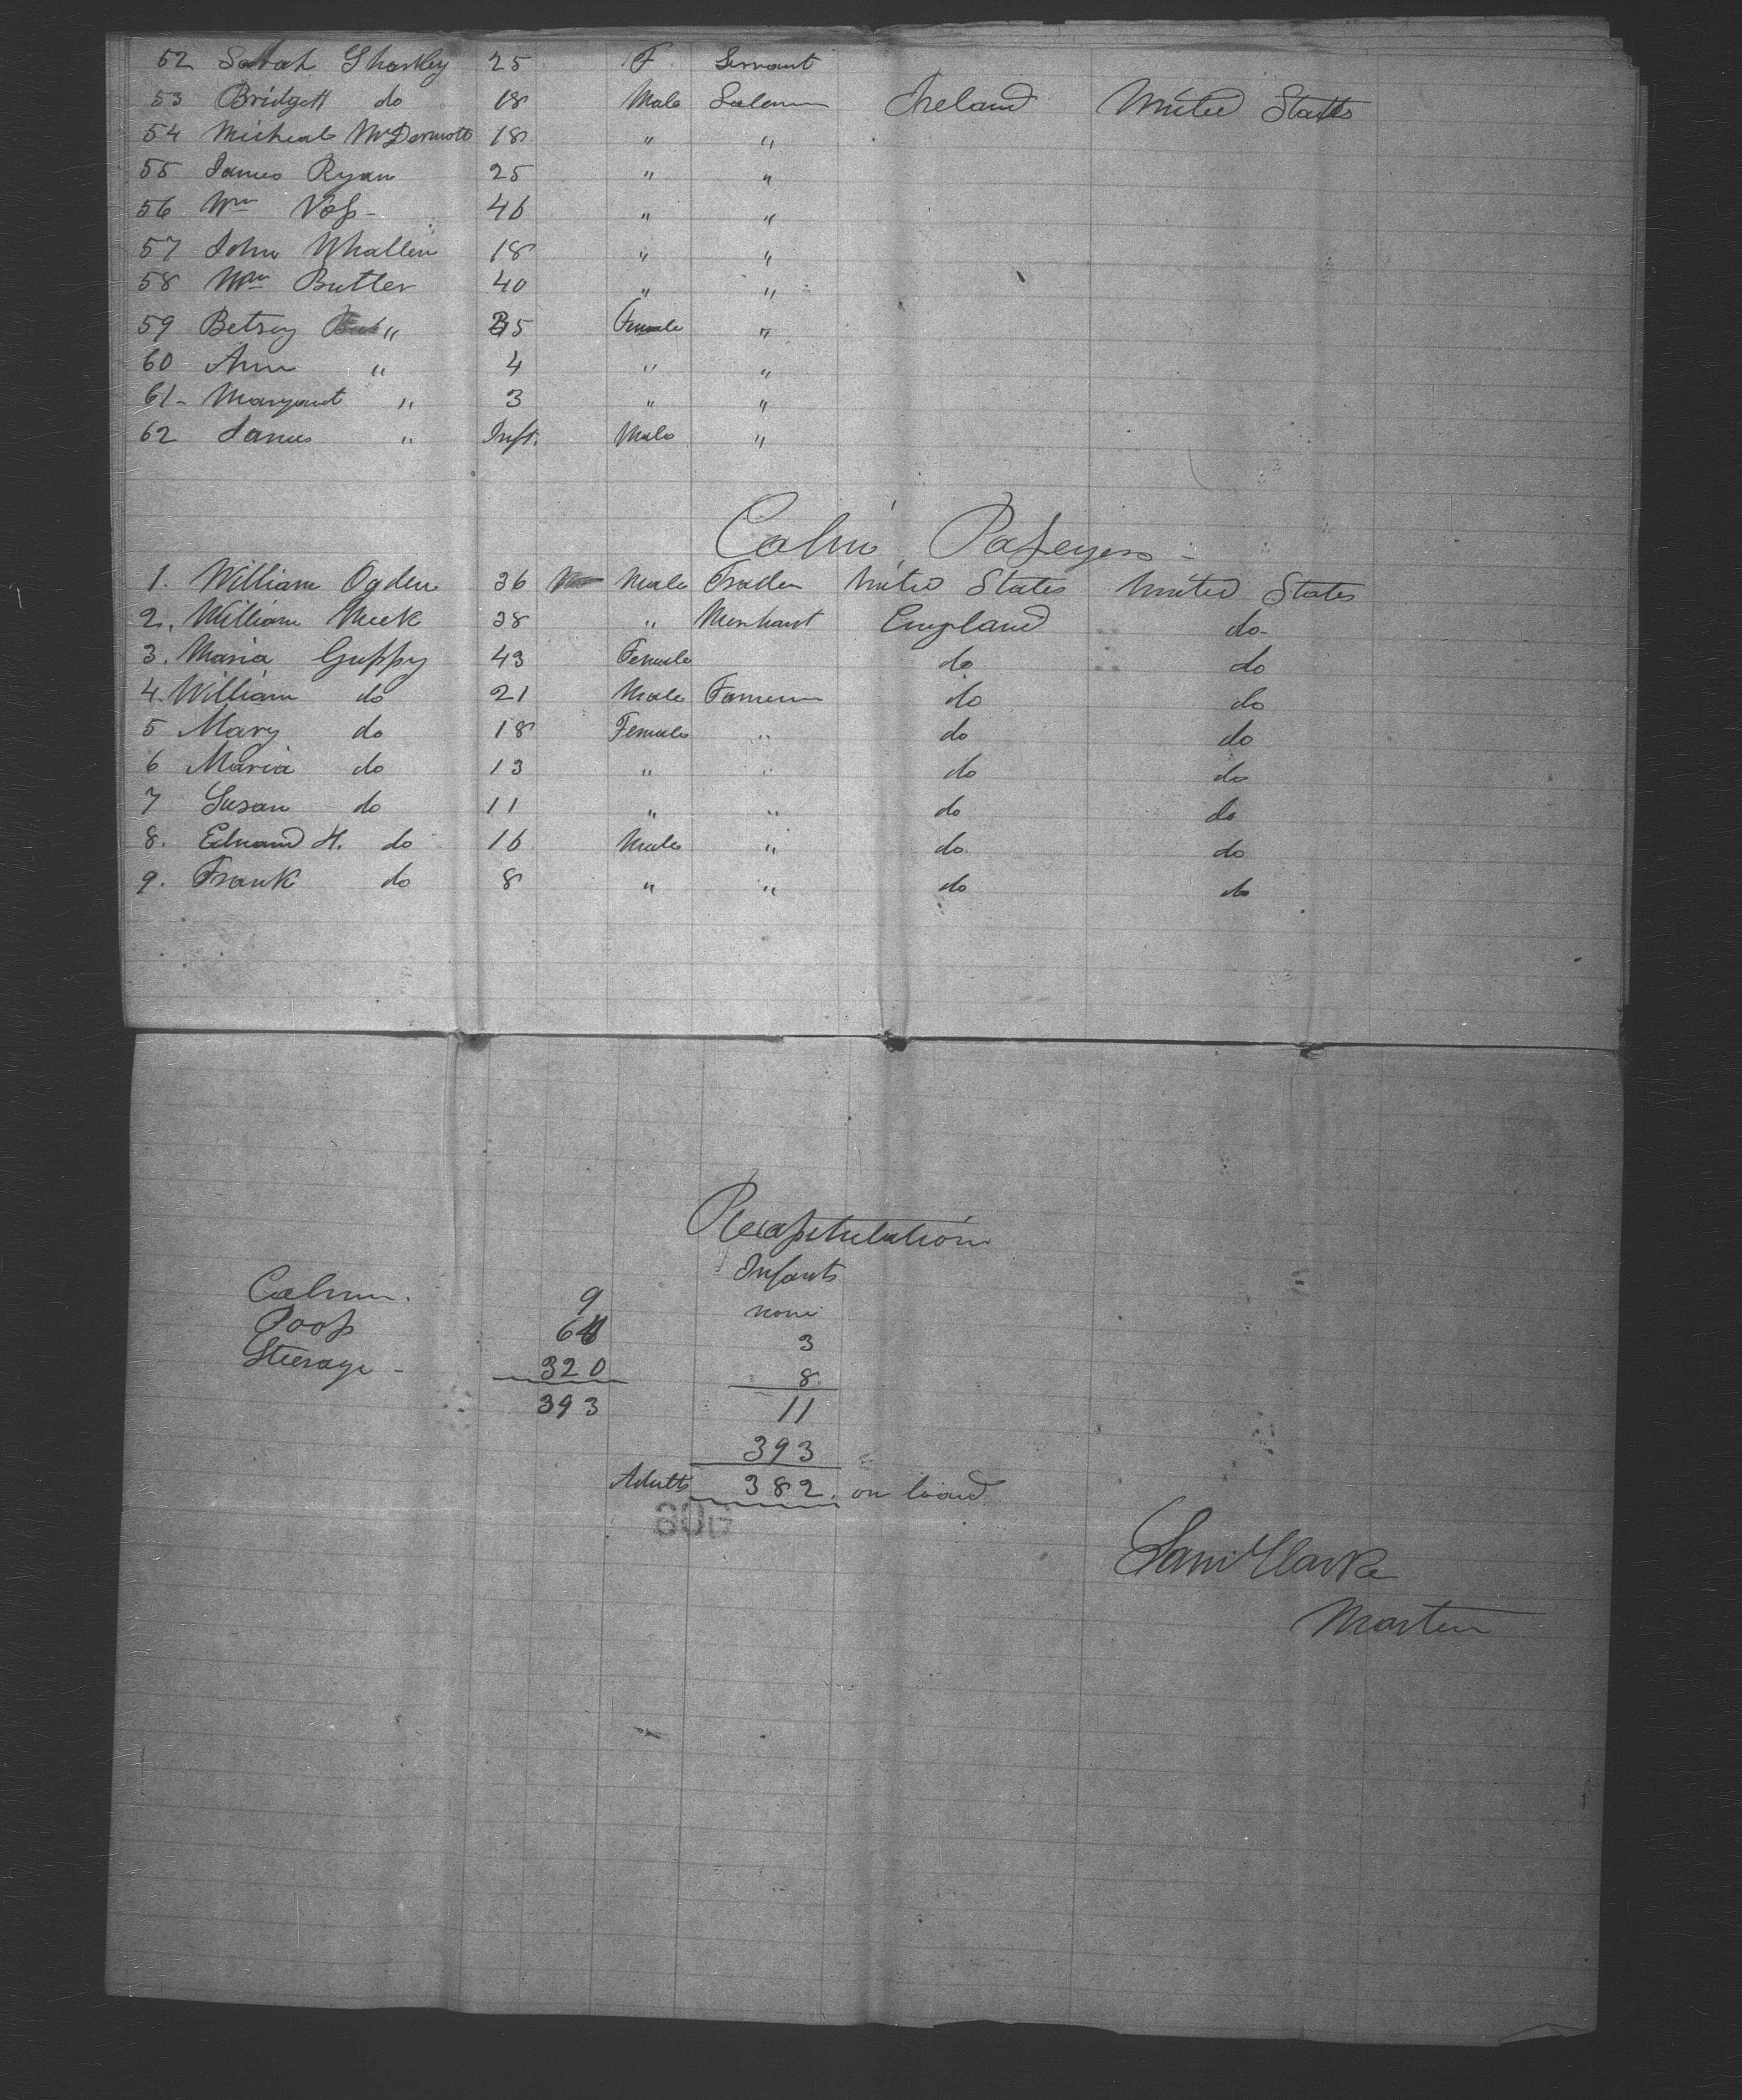 52 Sarah Sharkey 25 F Servant
53 Bridgett do 18 Male Laborer Ireland United States
54 Micheal McDermott 18 " "
55 James Ryan 25 " "
56 Wm Voss - 46 " "
57 John Whallen 18 " "
58 Wm Butler 40 " "
59 Betsey " 35 Female "
60 Ann " 4 " "
61 - Margaret " 3 " "
62 James " Inft. Male "
Cabin Passengers -
1. William Ogden 36 Male Trader United States United States
2. William Meek 38 " Merchant England do -
3. Maria Guppy 43 Female do do
4. William do 21 Male Farmer do do
5 Mary do 18 Female " do do
6 Maria do 13 " " do do
7 Susan do 11 " " do do
8. Edward H. do 16 Male " do do
9. Frank do 8 " " do do
Recapitulation
Infants
Cabin. 9 none
Poop 64 3
Steerage - 320 8
393 11
393
Adults 382. on board
Saml Clark
Master